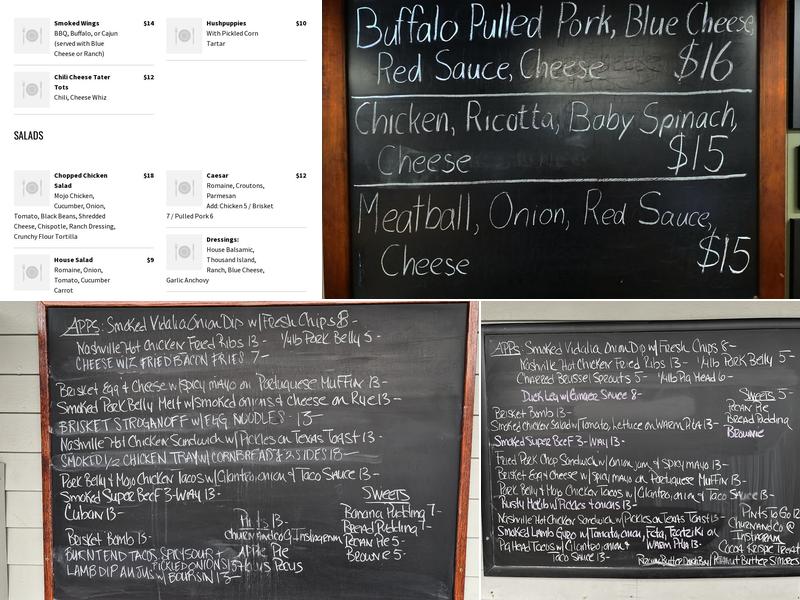 Smoked Wings $14
BBQ, Buffalo, or Cajun
(served with Blue
Cheese or Ranch)
Hushpuppies $10
With Pickled Corn
Tartar
Chili Cheese Tater $12
Tots
Chili, Cheese Whiz
SALADS
Chopped Chicken $18
Salad
Mojo Chicken,
Cucumber, Onion,
Tomato, Black Beans, Shredded
Cheese, Chipotle, Ranch Dressing,
Crunchy Flour Tortilla
Caesar $12
Romaine, Croutons,
Parmesan
Add: Chicken 5 / Brisket
7 / Pulled Pork 6
House Salad $9
Romaine, Onion,
Tomato, Cucumber
Carrot
Dressings:
House Balsamic,
Thousand Island,
Ranch, Blue Cheese,
Garlic Anchovy
Buffalo Pulled Pork, Blue Cheese,
Red Sauce, Cheese $16
Chicken, Ricotta, Baby Spinach,
Cheese $15
Meatball, Onion, Red Sauce,
Cheese $15
APPS: Smoked Vidalia Onion Dip w/ Fresh Chips 8-
Nashville Hot Chicken Fried Ribs 13- 1/4lb Pork Belly 5-
CHEESE WIZ FRIED BACON FRIES 7-
Brisket Egg & Cheese w/ spicy mayo on Portuguese Muffin 13-
Smoked Pork Belly Melt w/ smoked onions & cheese on Rye 13-
BRISKET STROGANOFF w/ EGG NOODLES - 13-
Nashville Hot Chicken Sandwich w/ Pickles on Texas Toast 13-
SMOKED 1/2 CHICKEN TRAY w/ CORNBREAD & 2 SIDES 18-
Pork Belly & Mojo Chicken Tacos w/ Cilantro, onion & Taco Sauce 13-
Smoked Super Beef 3-WAY 13-
Cuban 13-
Brisket Bomb 13-
BURNT END TACOS, SPICY SOUR +
PICKLED ONIONS 13-
LAMB DIP AU JUS w/ BOURSIN 13-
Pints 13-
churnandco @ Instagram
Apple Pie
Hocus Pocus
Sweets
Banana Pudding 7-
Bread Pudding 7-
Pecan Pie 5-
Brownie 5-
APPS: Smoked Vidalia Onion Dip w/ Fresh Chips 8-
Nashville Hot Chicken Fried Ribs 13- 1/4lb Pork Belly 5-
Charred Brussel Sprouts 5- 1/4lb Pig Head 6-
Duck Leg w/ Ginger Sauce 8-
Brisket Bomb 13-
Smoked Chicken Salad w/ Tomato, Lettuce on WARM PITA 13-
Smoked Super Beef 3-WAY 13-
Fried Pork Chop Sandwich w/ onion jam & spicy mayo 13-
Brisket Egg & Cheese w/ spicy mayo on Portuguese Muffin 13-
Pork Belly & Mojo Chicken Tacos w/ Cilantro, onion & Taco Sauce 13-
Pickles & onions 13-
Nashville Hot Chicken Sandwich w/ Pickles on Texas Toast 13-
Smoked Lamb Gyro w/ Tomato, onion, Feta, Tzatziki on
WARM PITA 13-
Pig Head Tacos w/ Cilantro, onion &
Taco Sauce 13-
Sweets 5-
Pecan Pie
Bread Pudding
Brownie
Pints To Go 12
Churnandco @
Instagram
Cocoa Krispie Treat
Peanut Butter S'mores